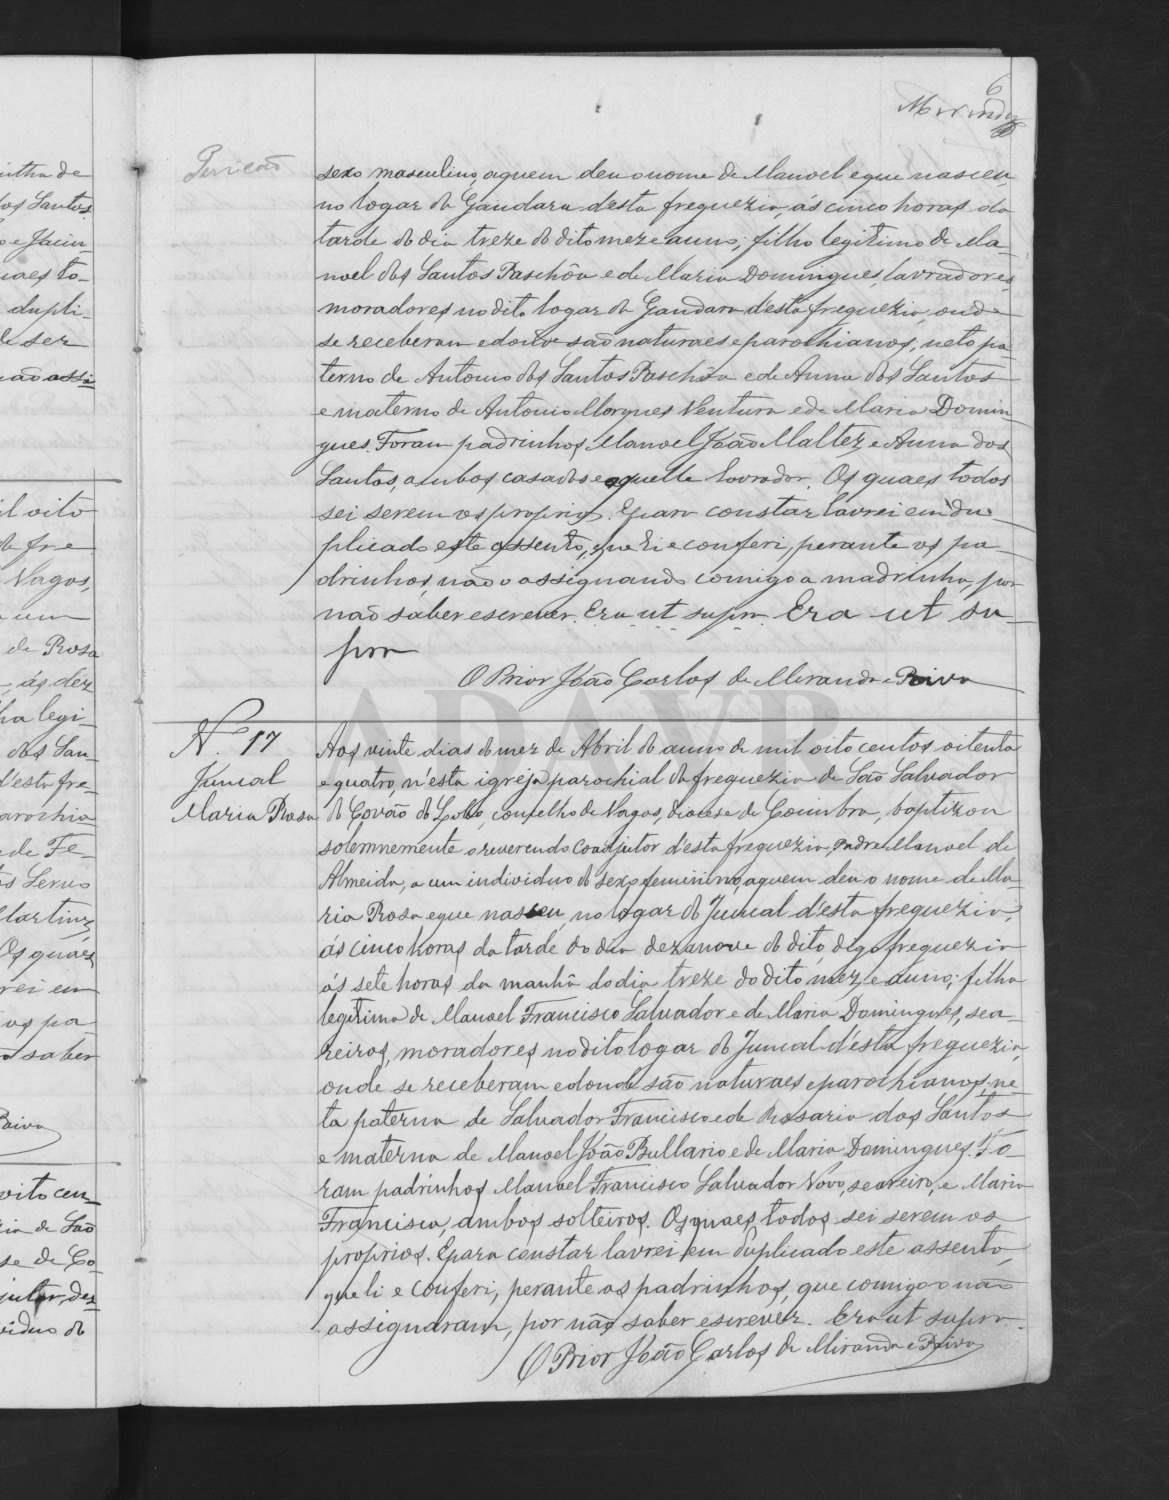 6
Miranda
sexo masculino, a quem deu o nome de Manoel e que nasceu,
no logar da Gandara desta freguezia, ás cinco horas da
tarde do dia treze do dito mez e anno; filho legitimo de Ma-
noel dos Santos Paschôa e de Maria Domingues, lavradores,
moradores no dito logar da Gandara desta freguezia, onde
se receberam e donde são naturaes e parochianos, neto pa-
terno de Antonio dos Santos Paschôa e de Anna dos Santos
e materno de Antonio Marques Ventura e de Maria Domin
gues. Foram padrinhos Manoel João Maltez e Anna dos
Santos, ambos casados e aquelle lavrador. Os quaes todos
sei serem os proprios. E para constar lavrei em du-
plicado este assento, que li e conferi, perante os pa-
drinhos, não o assignando comigo a madrinha, por
não saber escrever. Era ut supra. Era ut su-
pra
O Prior João Carlos de Miranda e Paiva
N.º 17
Juncal
Maria Rosa
Aos vinte dias do mez de Abril do anno de mil oito centos oitenta
e quatro, n'esta igreja parochial da freguezia de São Salvador
do Covão do Lobo, conselho de Vagos, diocese de Coimbra, baptizou
solemnemente o reverendo coadjutor d'esta freguezia, Padre Manoel de
Almeida, a um individuo do sexo feminino, a quem deu o nome de Ma-
ria Rosa e que nasceu, no logar do Juncal d'esta freguezia,
ás cinco horas da tarde do dia dezanove do dito, digo freguezia
ás sete horas da manhã do dia treze do dito mez e anno; filha
legitima de Manoel Francisco Salvador e de Maria Domingues, sea-
reiros, moradores no dito logar do Juncal d'esta freguezia,
onde se receberam e donde são naturaes e parochianos; ne-
ta paterna de Salvador Francisco e de Rosaria dos Santos
e materna de Manoel João Bullario e de Maria Domingues. Fo-
ram padrinhos Manoel Francisco Salvador Novo, seareiro, e Maria
Francisca, ambos solteiros. Os quaes todos sei serem os
proprios. E para constar lavrei em duplicado este assento,
que li e conferi, perante os padrinhos, que comigo o não
assignaram, por não saber escrever. Era ut supra.
O Prior João Carlos de Miranda e Paiva
ADAVR